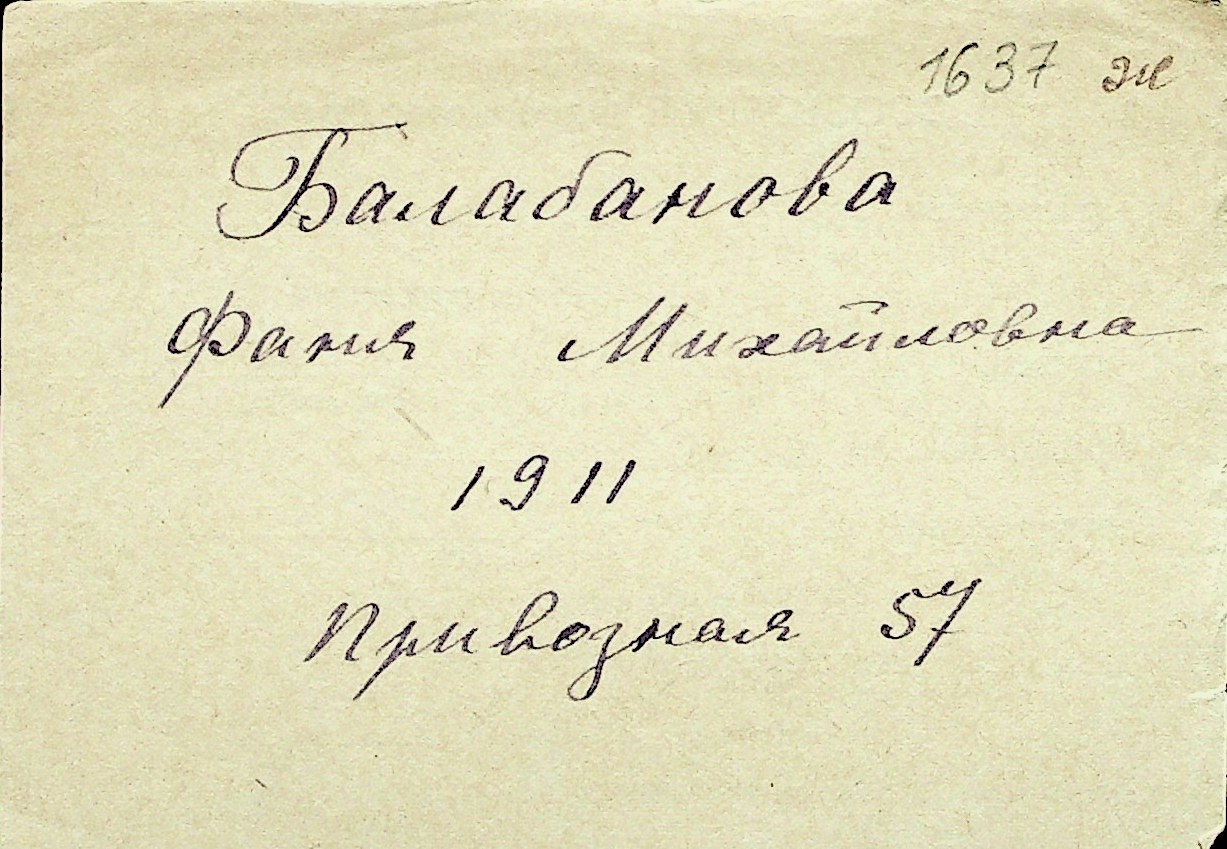 1637 ж
Балабанова
Фаня Михайловна
1911
Привозная 57